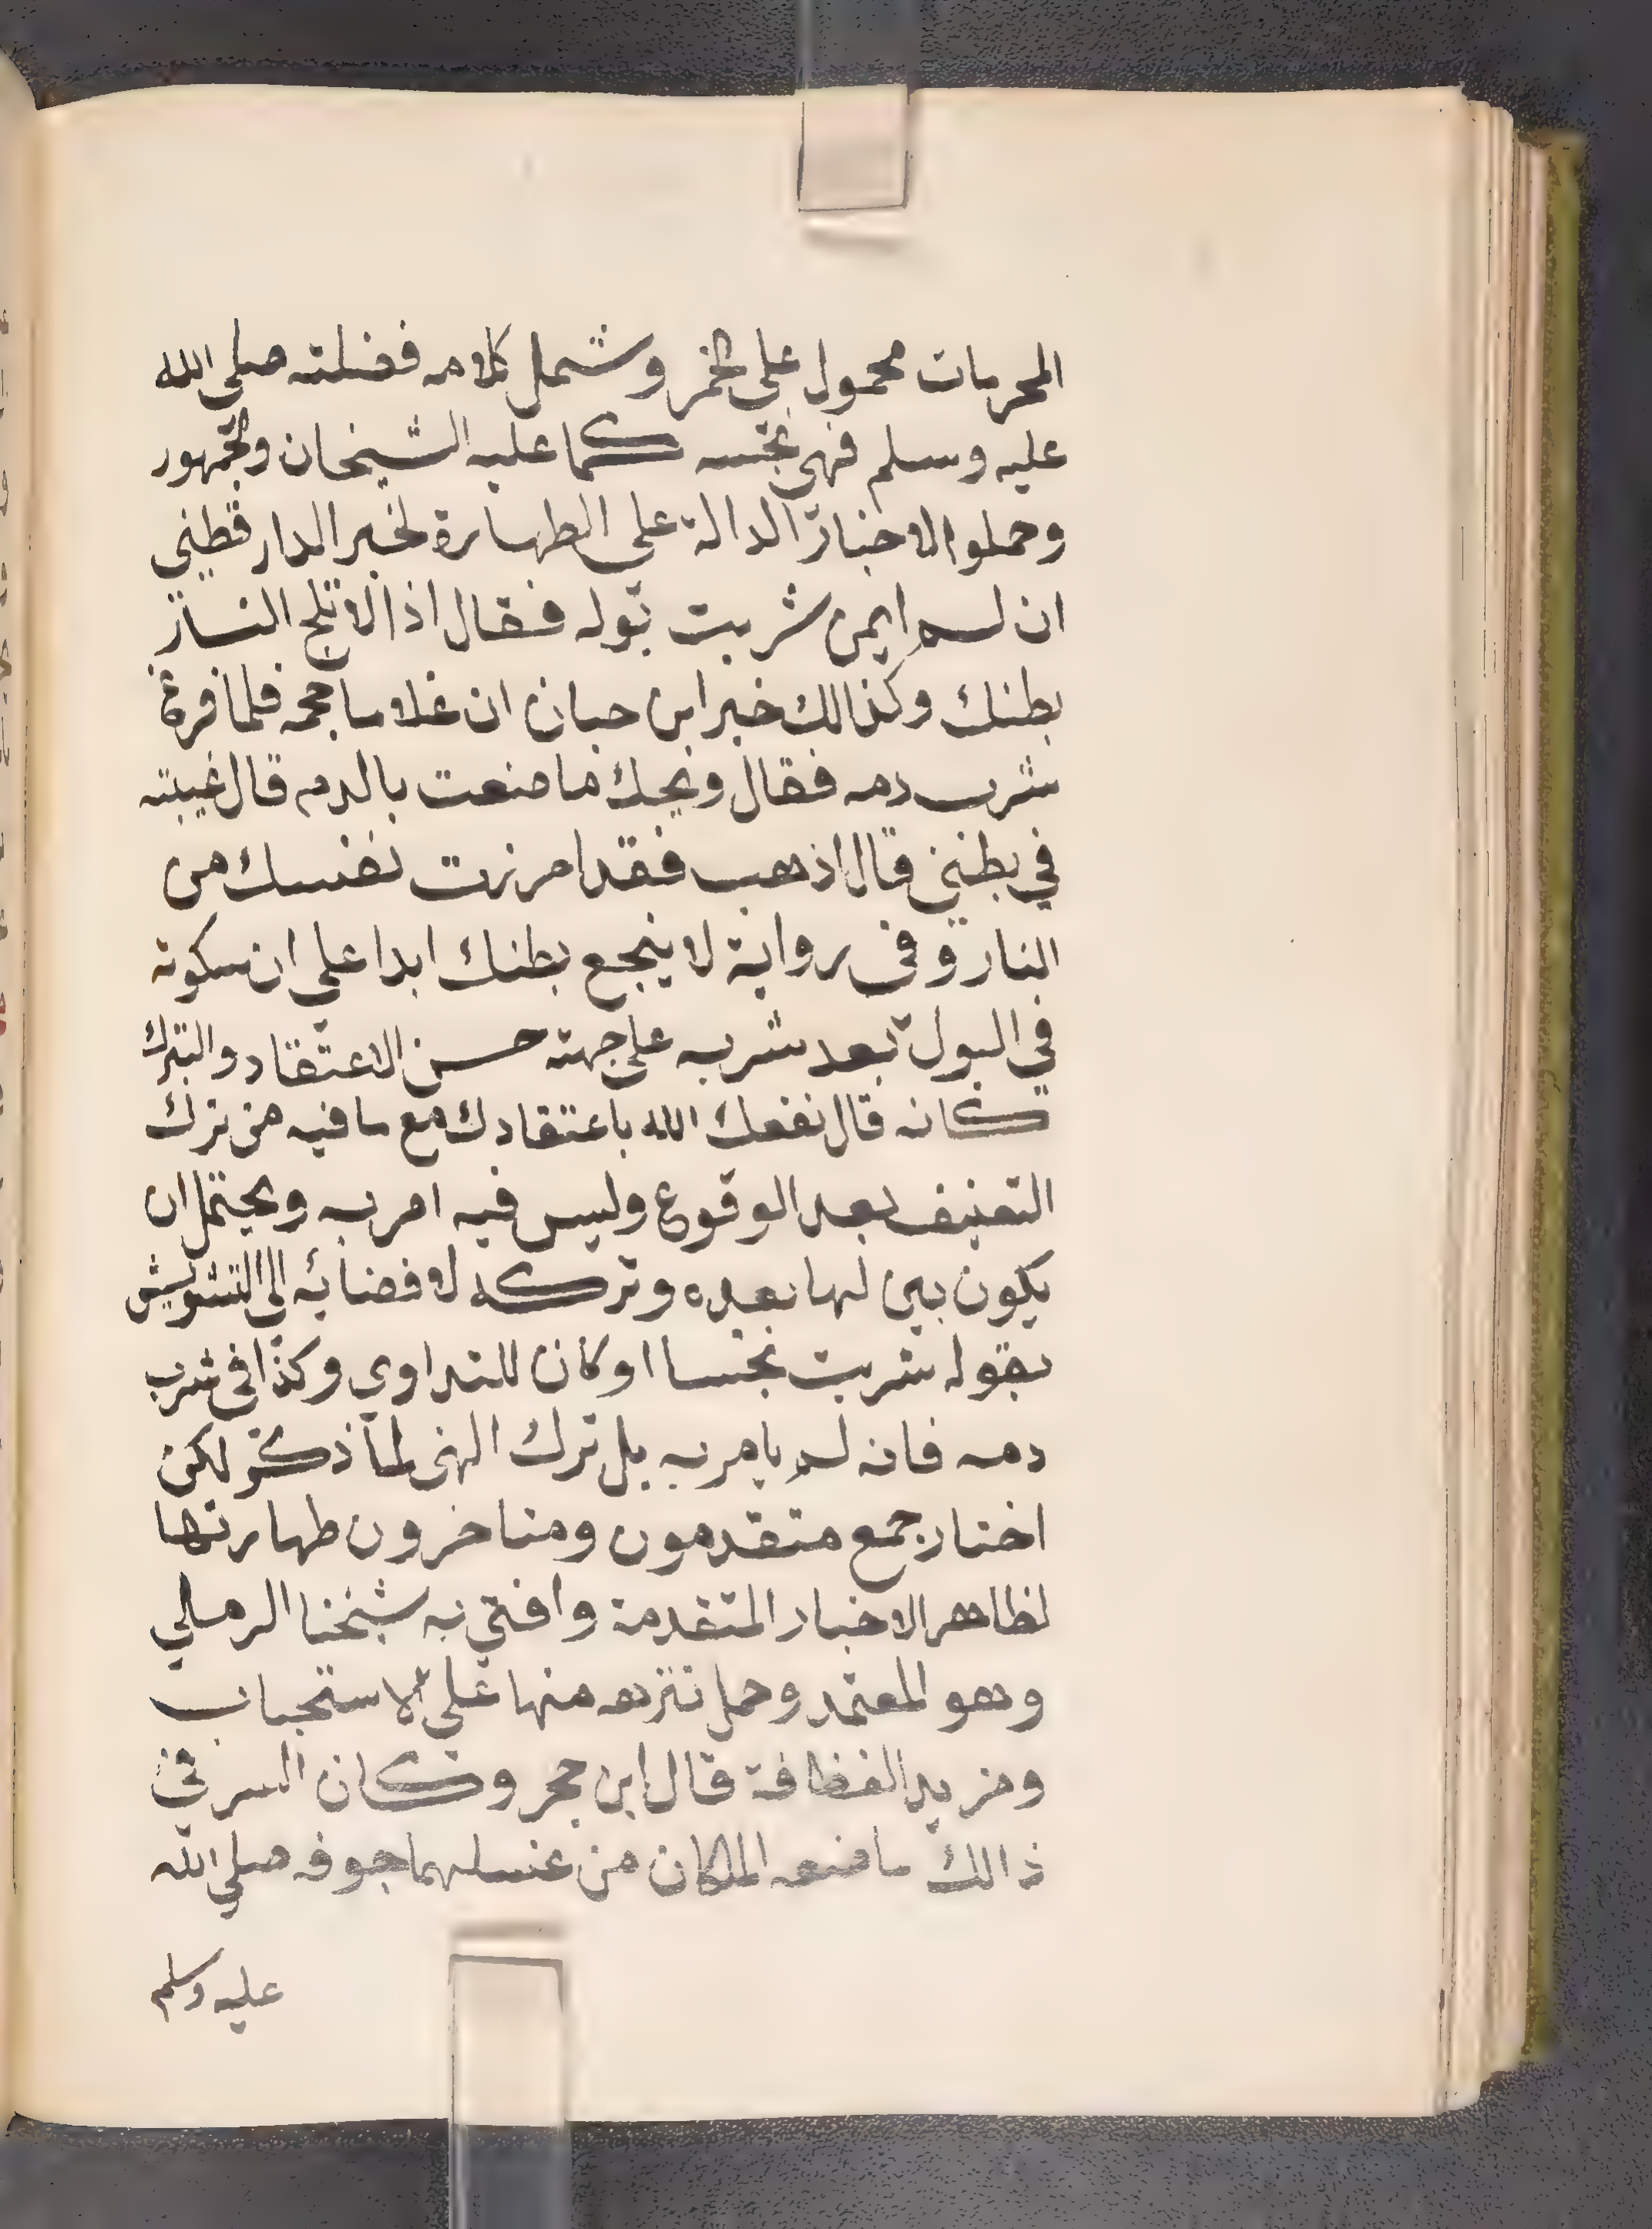 المحرمات محمول على الخمر وشمل كلامه فضلته صلى الله
عليه وسلم فهي نجسه كما عليه الشيخان والجمهور
وحملوا الاخبار الدالة على الطهارة لخبر الدار قطني
ان ام ايمن شربت بوله فقال اذا لا تلج النار
بطنك وكذالك خبر ابن حبان ان غلاما حجمه فلما فرغ
شرب دمه فقال ويحك ما صنعت بالدم قال غيبته
في بطني قال اذهب فقد احرزت نفسك من
النار وفي رواية لا ينجع بطنك ابدا على ان سكوته
في البول بعد شربه على جهة حسن الاعتقاد والتبرك
كانه قال نفعك الله باعتقادك مع ما فيه من ترك
التعنيف بعد الوقوع وليس فيه امر به ويحتمل ان
يكون بين لها بعده وتركه لافضائه الى التشويش
بقوله شربت نجسا او كان للتداوي وكذا في شرب
دمه فانه لم يامر به بل ترك النهى لما ذكر لكن
اختار جمع متقدمون ومتاخرون طهارتها
لظاهر الاخبار المتقدمة وافتي به شيخنا الرملي
وهو المعتمد وحمل تنزهه منها على الاستحباب
ومزيد النظافة قال ابن حجر وكان السر في
ذالك ما صنعه الملكان من غسلهما جوفه صلى الله
عليه وسلم